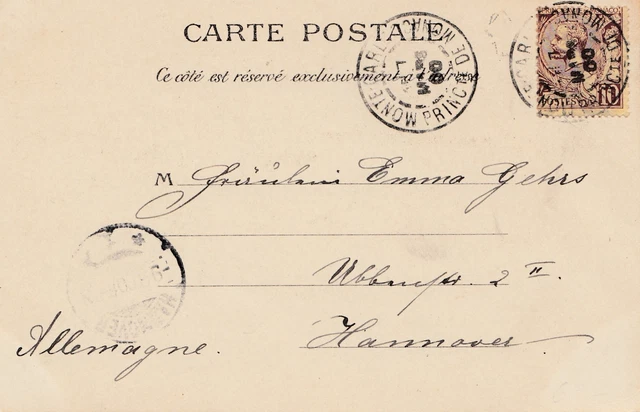 CARTE POSTALE
Ce côté est réservé exclusivement à l'adresse
MONTE-CARLO
PRINCTE DE MONACO
10
M Fräulein Emma Gehrs
Ubbenstr. 2 II
Hannover
Allemagne.